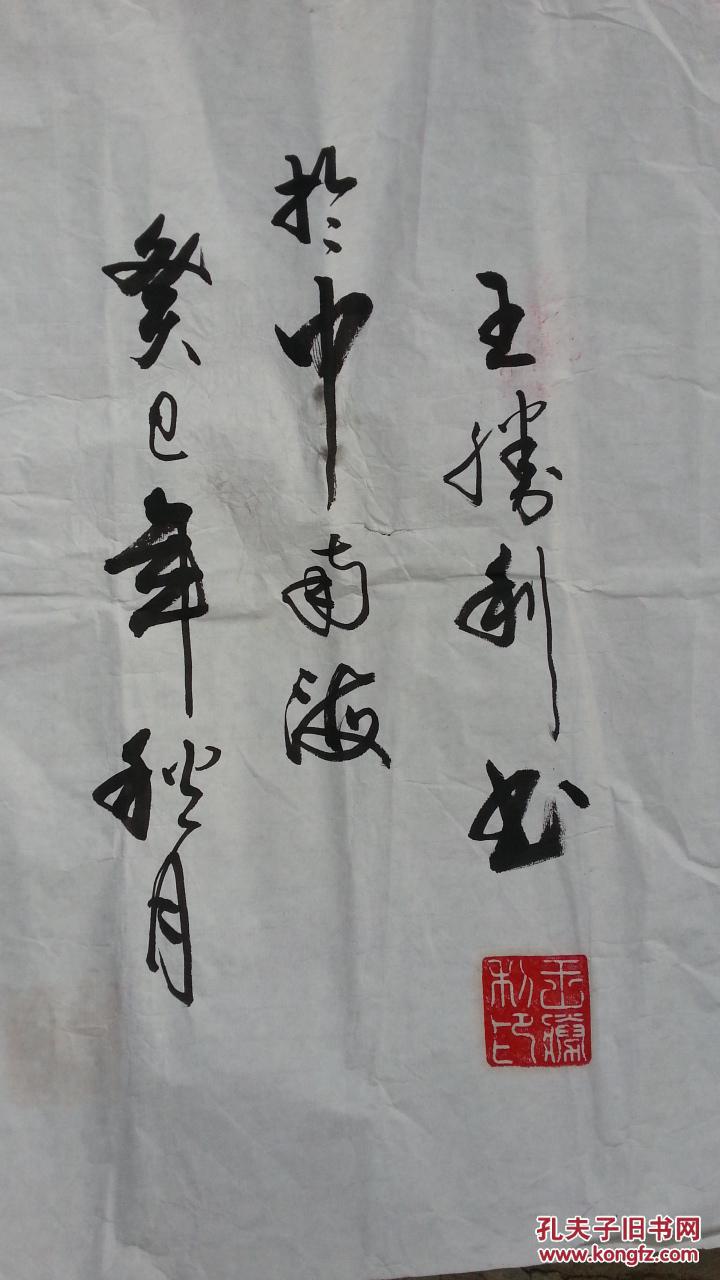 王勝利书
於中南海
癸巳年秋月
王勝利印
孔夫子旧书网
www.kongfz.com